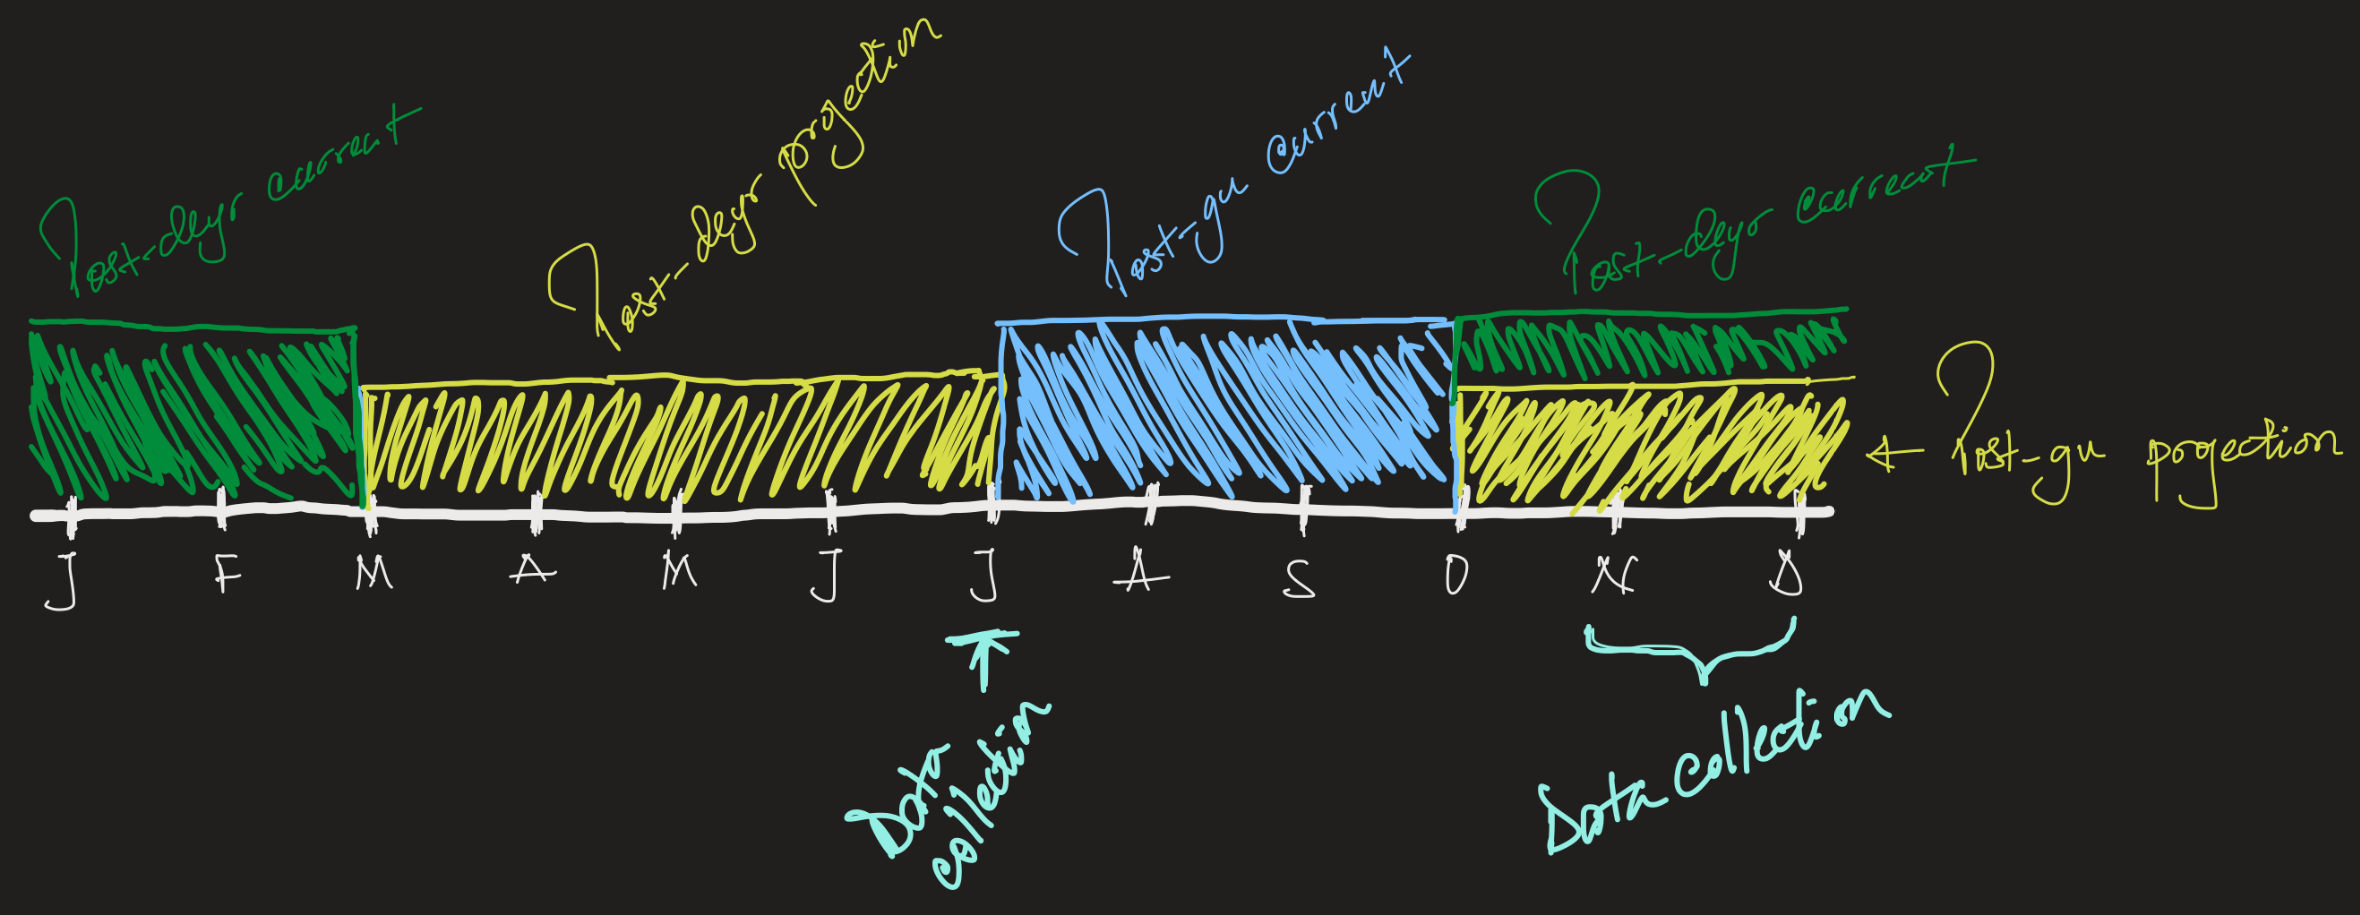 Post-deyr current
Post-deyr projection
Post-gu current
Post-deyr current
← Post-gu projection
J F M A M J J A S O N D
Data
collection
Data collection